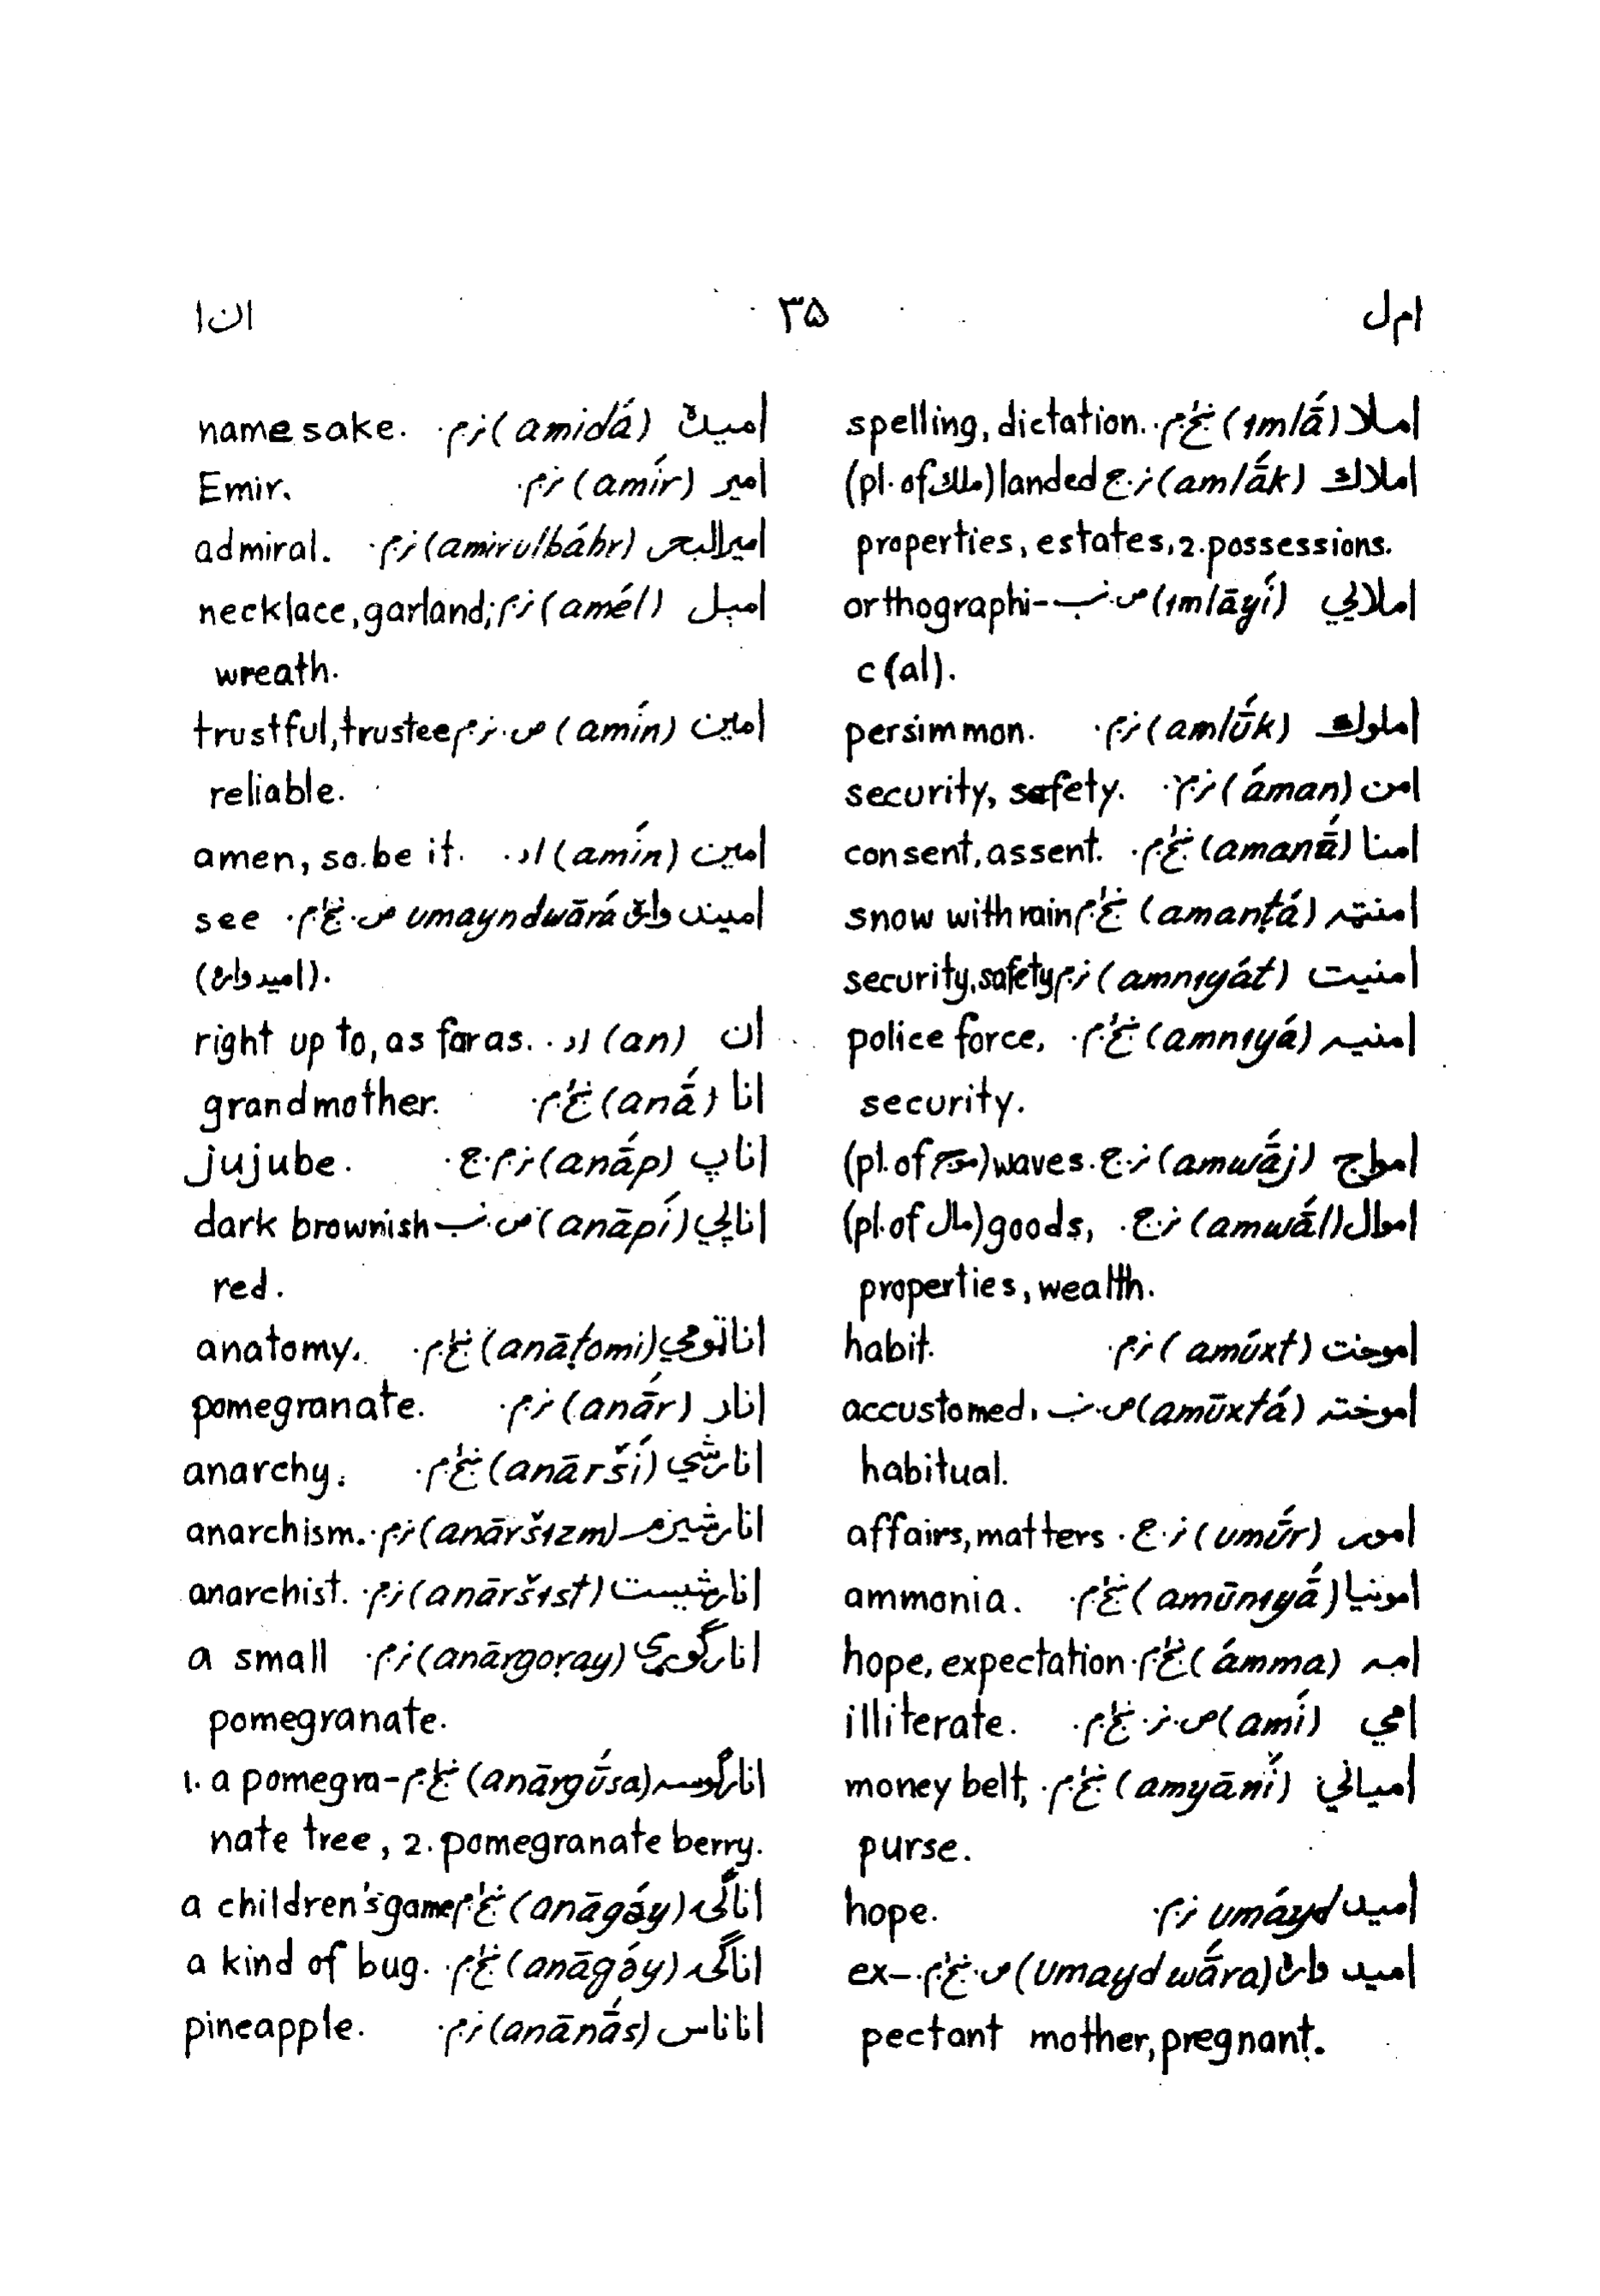 امل ۳۵ انا
املا (ɪmlā́) ښځ.م. spelling, dictation.
املاک (amlā́k) نر.ج (pl. of ملک) landed
properties, estates, 2. possessions.
املايي (ɪmlāyí) ص.نب orthographi-
c(al).
املوک (amlū́k) نر.م. persimmon.
امن (áman) نر.م. security, safety.
امنا (amanā́) ښځ.م. consent, assent.
امنټه (amanṭá) ښځ.م snow with rain
امنيت (amnɪyát) نر.م security, safety
امنيه (amnɪyá) ښځ.م. police force,
security.
امواج (amwā́j) نر.ج. (pl. of موج) waves.
اموال (amwā́l) نر.ج. (pl. of مال) goods,
properties, wealth.
اموخت (amúxt) نر.م. habit.
اموخته (amūxtá) ص.نب accustomed,
habitual.
امور (umū́r) نر.ج. affairs, matters
امونيا (amūnɪyā́) ښځ.م. ammonia.
امه (ámma) ښځ.م. hope, expectation
امي (amí) ص.نر.ښځ.م. illiterate.
امياني (amyāní) ښځ.م. money belt,
purse.
اميد umáyd نر.م. hope.
اميد واره (umaydwā́ra) ص.ښځ.م. ex-
pectant mother, pregnant.
اميده (amidá) نر.م. namesake.
امير (amír) نر.م. Emir.
اميرالبحر (amirulbáhr) نر.م. admiral.
امېل (amél) نر.م necklace, garland;
wreath.
امين (amín) ص.نر.م trustful, trustee
reliable.
امين (amín) اد. amen, so be it.
اميند واره umayndwārá ص.ښځ.م. see
(اميد واره).
ان (an) اد. right up to, as far as.
انا (anā́) ښځ.م. grandmother.
اناپ (anā́p) نر.م.ج. jujube.
اناپي (anāpí) ص.نب dark brownish
red.
اناټومي (anāṭomi) ښځ.م. anatomy.
انار (anā́r) نر.م. pomegranate.
انارشي (anārší) ښځ.م. anarchy.
انارشيزم (anāršɪzm) نر.م. anarchism.
انارشيست (anāršɪst) نر.م. anarchist.
انارګوړی (anārgoṛay) نر.م. a small
pomegranate.
انارګوسه (anārgū́sa) ښځ.م 1. a pomegra-
nate tree, 2. pomegranate berry.
اناګۍ (anāgə́y) ښځ.م a children's game
اناګۍ (anāgə́y) ښځ.م. a kind of bug.
اناناس (anānā́s) نر.م. pineapple.